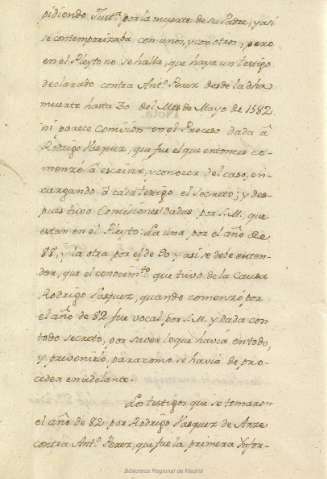 pidiendo Just.ª por la muerte de su Padre, y así
se contemporizaba con unos, y con otros, pero
en el Pleyto no se halla, que haya un testigo
declarado contra Ant.º Perez desde la dha
muerte hasta 30 del Mes de Mayo de 1582
ni parece Comision en el Proceso dada â
Rodrigo Vazquez, que fue el que entonces co-
menzo â escrivir, y conocer del caso, en-
cargando â cada testigo el secreto; y des-
pues tuvo Comisiones dadas por S.M. que
estan en el Pleyto. La una por el año de
88, y la otra por el de 90 y así se debe enten-
der, que el conocim.to que tuvo de la Causa
Rodrigo Vazquez, quando comenzó por
el año de 82 fue vocal por S.M. y dada con
todo secreto, por saver lo que havia en todo,
y prevenirlo, para como se havia de pro-
ceder en adelante
Los testigos que se tomaron
el año de 82 por Rodrigo Vazquez de Arze
contra Ant.º Perez, que fue la primera Ynfor-
Biblioteca Regional de Madrid